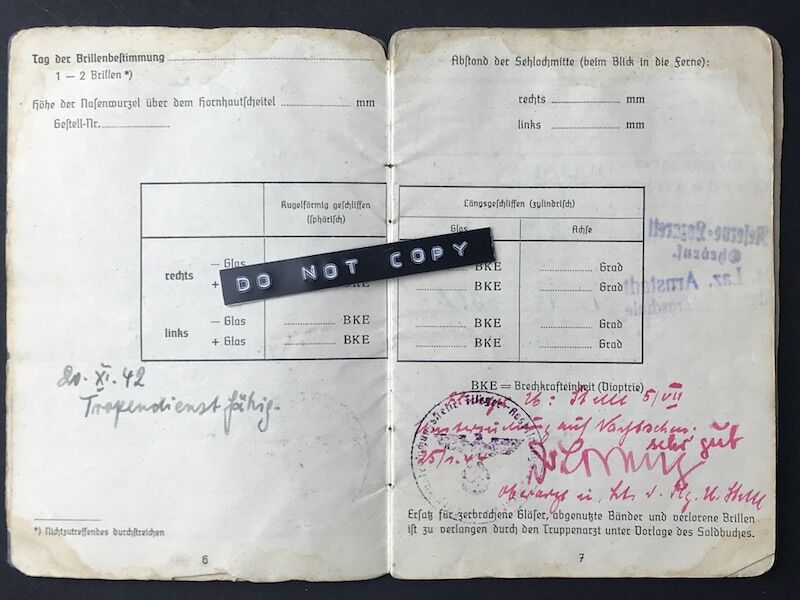 Tag der Brillenbestimmung
1 — 2 Brillen *)
Höhe der Nasenwurzel über dem Hornhautscheitel mm
Gestell-Nr.
Kugelförmig geschliffen
(sphärisch)
rechts — Glas
+
links — Glas BKE
+ Glas BKE
20. XI. 42
Tropendienstfähig.
*) Nichtzutreffendes durchstreichen
6
Abstand der Sehlochmitte (beim Blick in die Ferne):
rechts mm
links mm
Längsgeschliffen (zylindrisch)
Glas Achse
BKE Grad
BKE Grad
BKE Grad
BKE Grad
Reserve-Lazarett
Ohrdruf.
Laz. Arnstadt
BKE = Brechkrafteinheit (Dioptrie)
5/VII
auf
sehr gut
25/1.44
Oberarzt
Ersatz für zerbrochene Gläser, abgenutzte Bänder und verlorene Brillen
ist zu verlangen durch den Truppenarzt unter Vorlage des Soldbuches.
7
DO NOT COPY